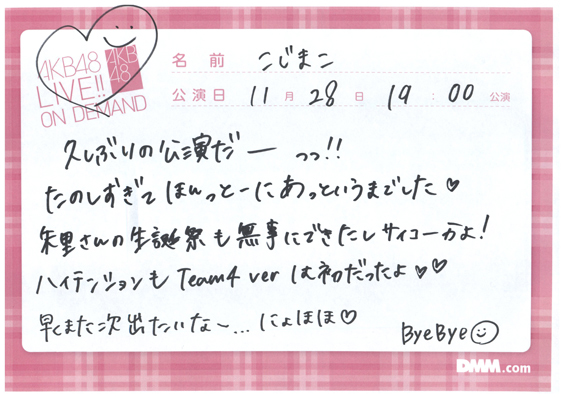 AKB48
LIVE!!
ON DEMAND
AKB
48
名 前 こじまこ
公演日 11 月 28 日 19 : 00 公演
久しぶりの公演だー っっ!!
たのしすぎて ほんっとーにあっというまでした♡
朱里さんの生誕祭も無事にできたしサイコーかよ!
ハイテンションも Team4 ver は初だったよ♡♡
早くまた次出たいなー... にょほほ♡
ByeBye☺
DMM.com